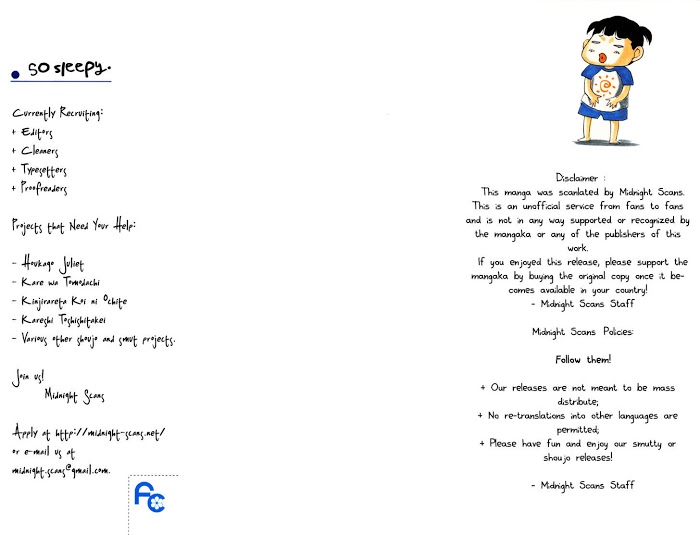 so sleepy.
Currently Recruiting:
+ Editors
+ Cleaners
+ Typesetters
+ Proofreaders
Projects that Need Your Help:
- Houkago Juliet
- Kare wa Tomodachi
- Kinjirareta Koi ni Ochite
- Kareshi Toshishitakei
- Various other shoujo and smut projects.
Join us!
Midnight Scans
Apply at http://midnight-scans.net/
or e-mail us at
midnight.scans@gmail.com.
FC
Disclaimer :
This manga was scanlated by Midnight Scans.
This is an unofficial service from fans to fans
and is not in any way supported or recognized by
the mangaka or any of the publshers of this
work.
If you enjoyed this release, please support the
mangaka by buying the original copy once it be-
comes available in your country!
- Midnight Scans Staff
Midnight Scans Policies:
Follow them!
+ Our releases are not meant to be mass
distribute;
+ No re-translations into other languages are
permitted;
+ Please have fun and enjoy our smutty or
shoujo releases!
- Midnight Scans Staff